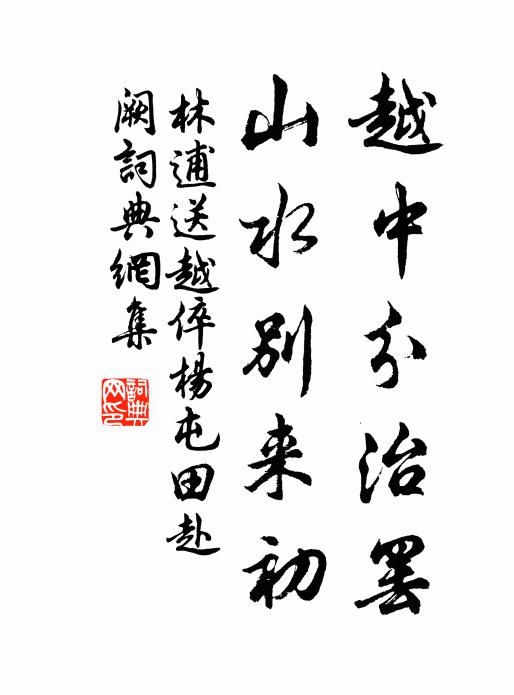 越中分治罢
山水别来初
林逋送越倅楊屯田赴
阙詞典網集
詞典网印